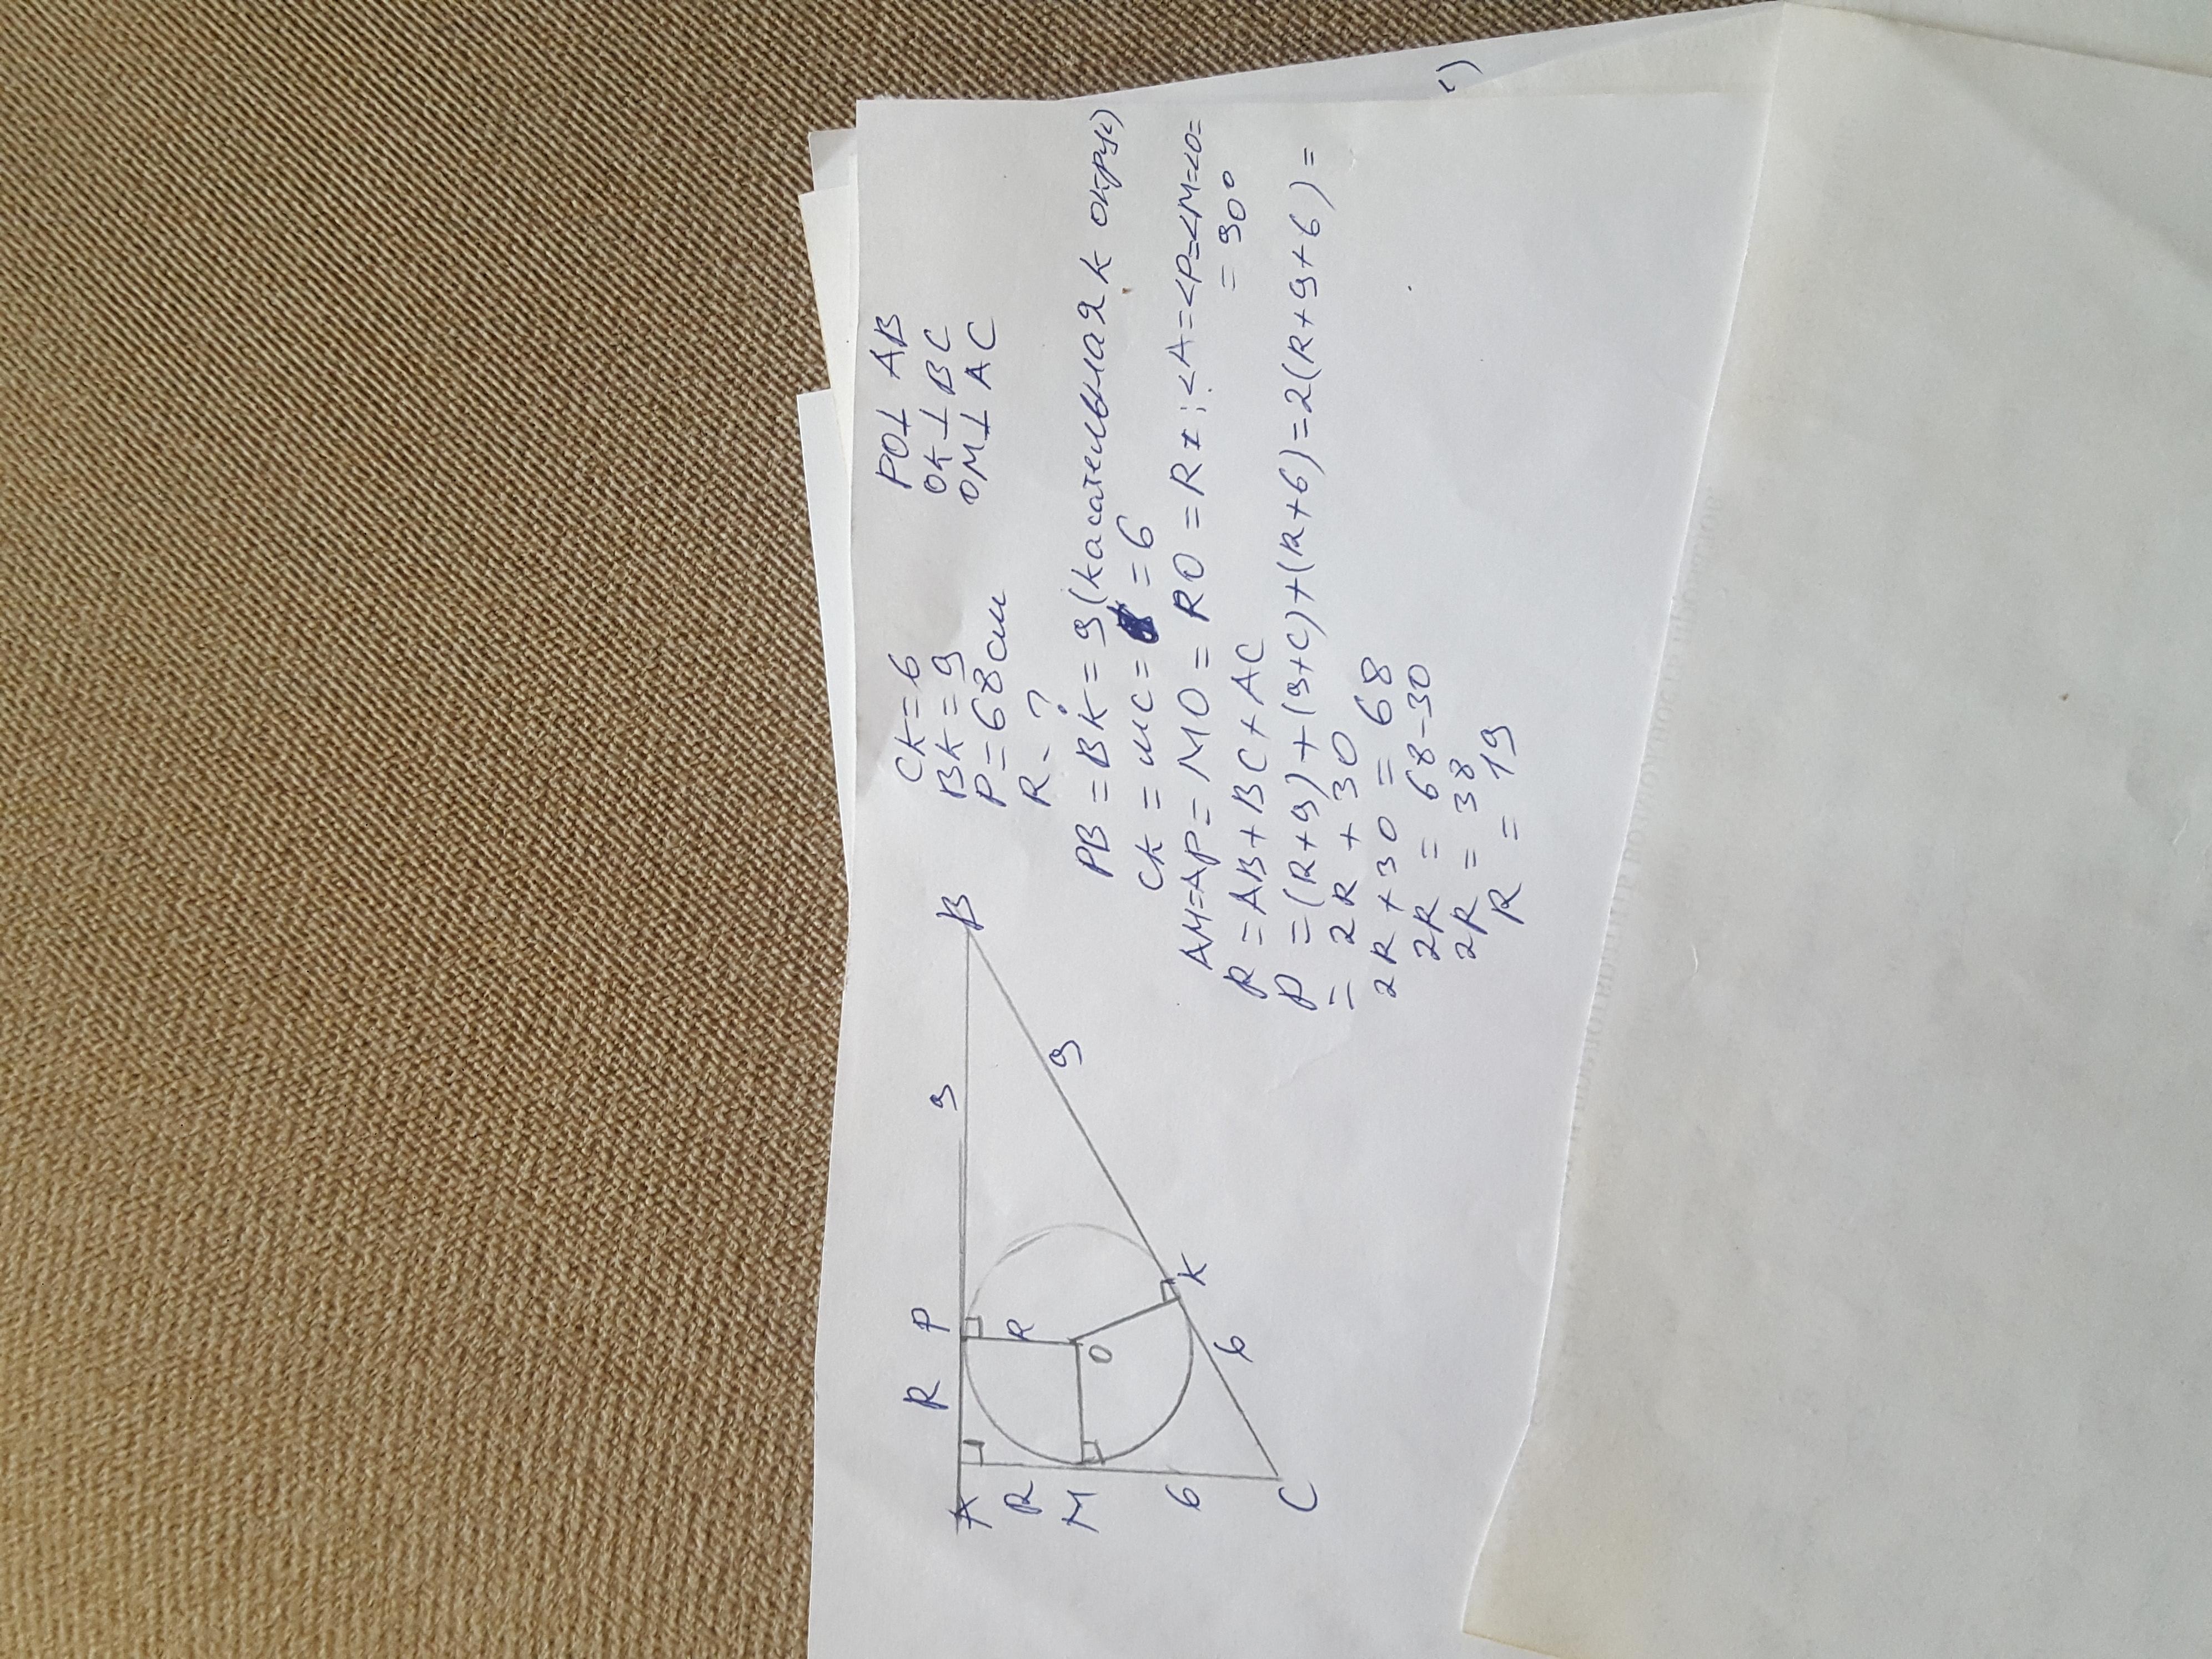 A R P 9 B
R
R
O
M
K
9
6
6
C
CK = 6
BK = 9
P = 68 см
R - ?
PO⊥ AB
OK ⊥ BC
OM⊥ AC
PB = BK = 9 (касательная к окруж)
CK = MC = = 6
AM=AP = MO = RO = R <A=<P=<M=<O=
= 90°
P = AB + BC + AC
P = (R+9) + (9+C) + (R+6) = 2(R+9+6) =
= 2R + 30
2R + 30 = 68
2R = 68-30
2R = 38
R = 19